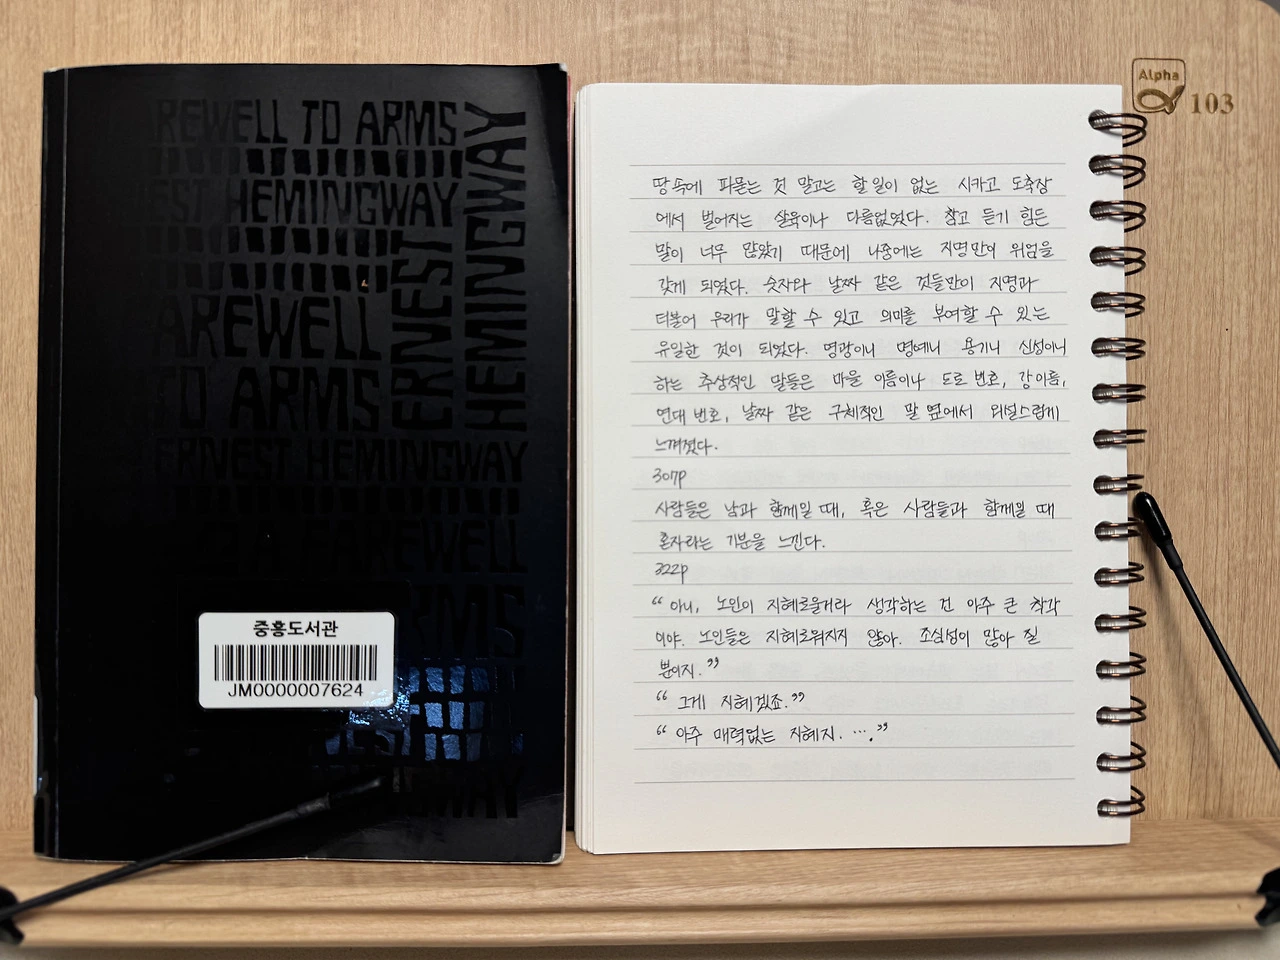 AREWELL TO ARMS
EST HEMINGWAY
AREWELL
TO ARMS
ERNEST
HEMINGWAY
ERNEST HEMINGWAY
FAREWELL
RMS
중흥도서관
JM0000007624
Alpha
103
땅속에 파묻는 것 말고는 할 일이 없는 시카고 도축장
에서 벌어지는 살육이나 다름없었다. 참고 듣기 힘든
말이 너무 많았기 때문에 나중에는 지명만이 위엄을
갖게 되었다. 숫자와 날짜 같은 것들만이 지명과
더불어 우리가 말할 수 있고 의미를 부여할 수 있는
유일한 것이 되었다. 영광이니 명예니 용기니 신성이니
하는 추상적인 말들은 마을 이름이나 도로 번호, 강 이름,
연대 번호, 날짜 같은 구체적인 말 옆에서 외설스럽게
느껴졌다.
307p
사람들은 남과 함께일 때, 혹은 사람들과 함께일 때
혼자라는 기분을 느낀다.
322p
“아니, 노인이 지혜로울거라 생각하는 건 아주 큰 착각
이야. 노인들은 지혜로워지지 않아. 조심성이 많아 질
뿐이지.”
“그게 지혜겠죠.”
“아주 매력없는 지혜지. ….”